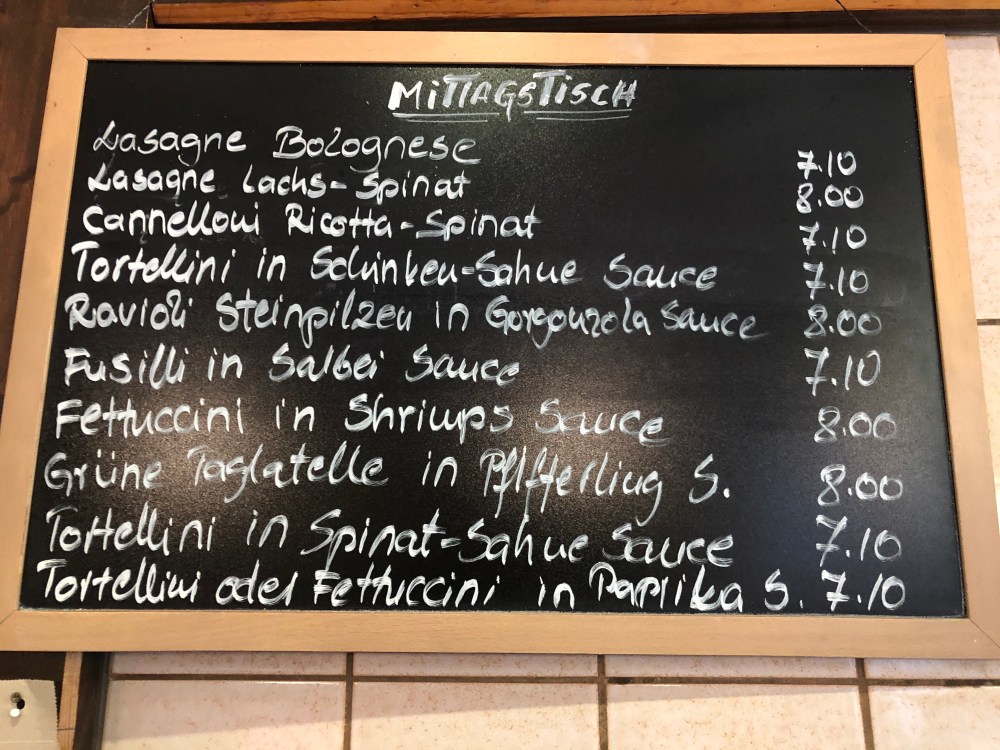 MITTAGSTISCH
Lasagne Bolognese 7.10
Lasagne Lachs-Spinat 8.00
Cannelloni Ricotta-Spinat 7.10
Tortellini in Schinken-Sahne Sauce 7.10
Ravioli Steinpilzen in Gorgonzola Sauce 8.00
Fusilli in Salbei Sauce 7.10
Fettuccini in Shrimps Sauce 8.00
Grüne Taglatelle in Pfifferling S. 8.00
Tortellini in Spinat-Sahne Sauce 7.10
Tortellini oder Fettuccini in Paprika S. 7.10